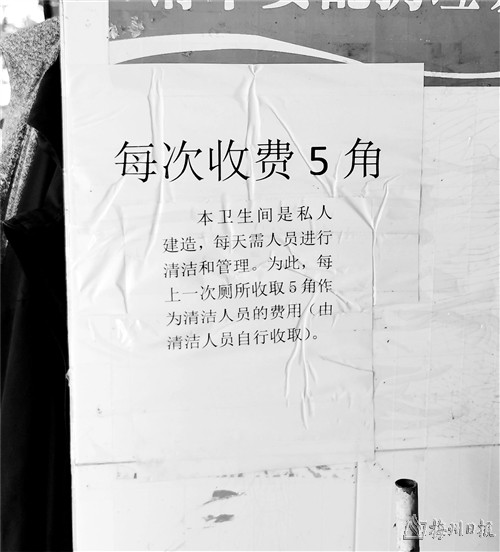 每次收费5角
本卫生间是私人
建造，每天需人员进行
清洁和管理。为此，每
上一次厕所收取5角作
为清洁人员的费用（由
清洁人员自行收取）。
梅州日报